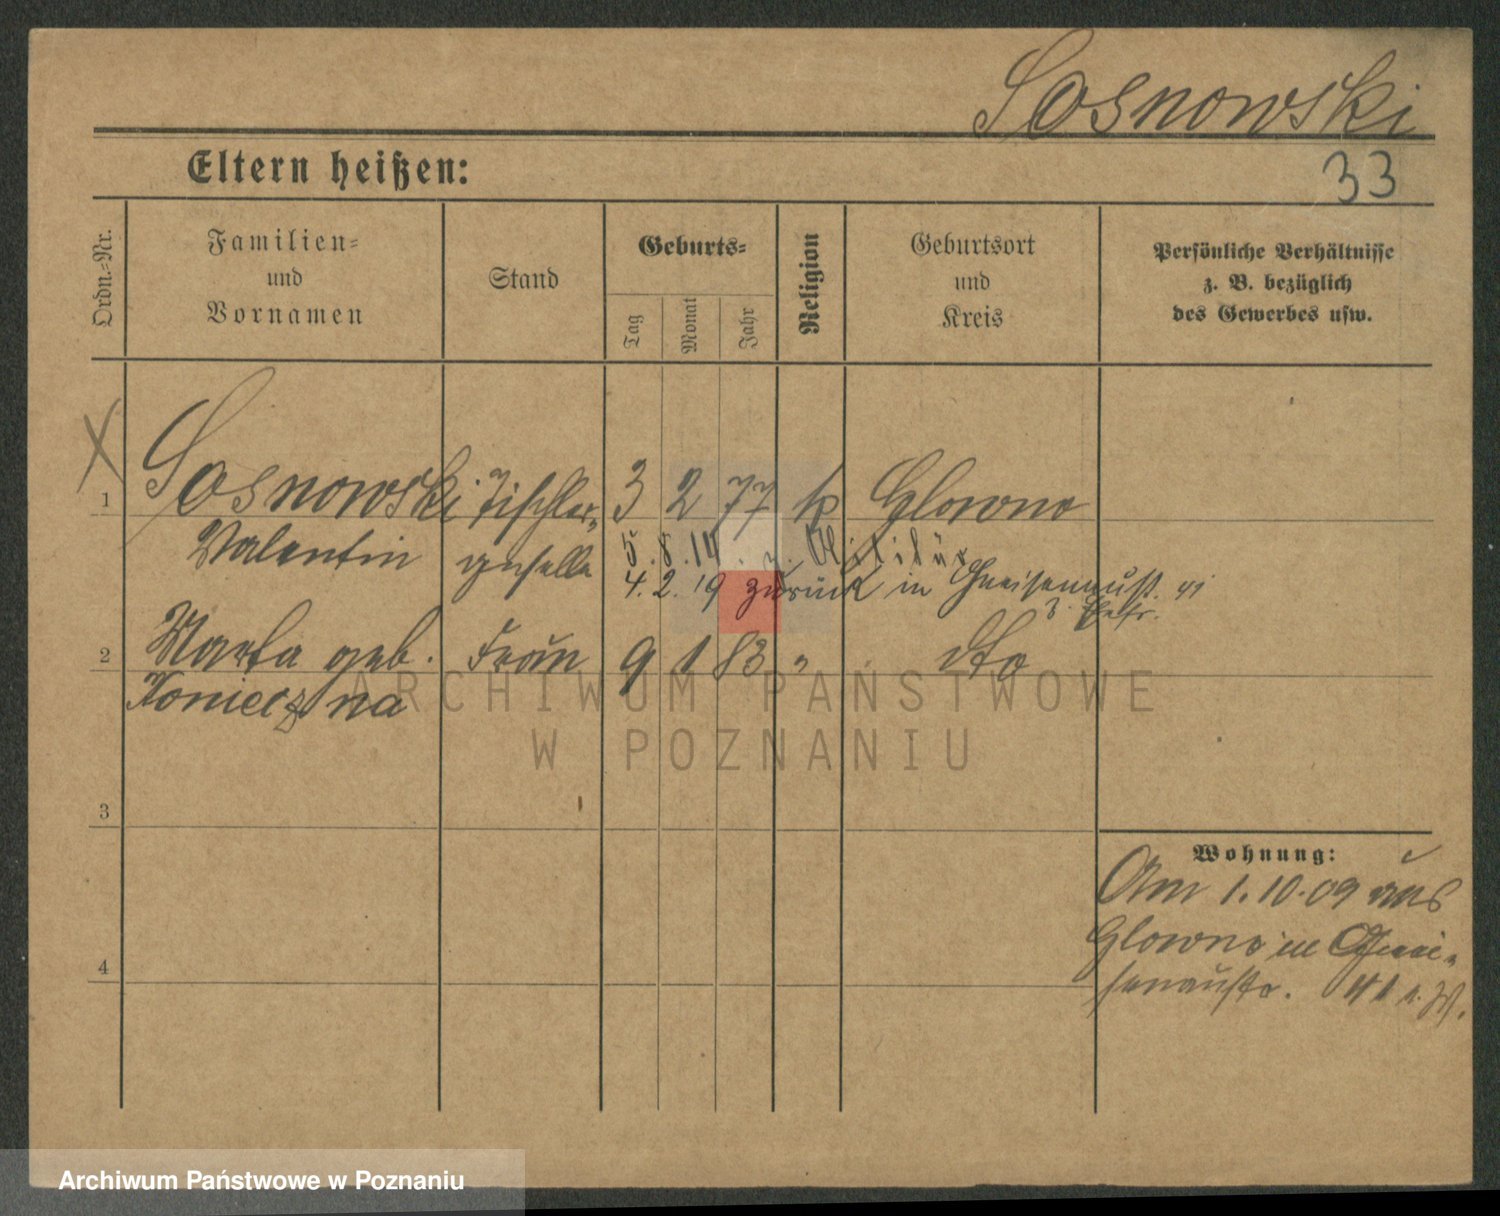 Sosnowski
33
Eltern heißen:
Ordn.-Nr.
Familien-
und
Vornamen
Stand
Geburts-
Tag
Monat
Jahr
Religion
Geburtsort
und
Kreis
Persönliche Verhältnisse
z. B. bezüglich
des Gewerbes usw.
X
1 Sosnowski Tischler- 3 2 77 k Glowno
Valentin geselle 5.8.14. z. Militär
4.2.19 zurück in Gneisenaust. 41
2 Marta geb. Frau 9 1 83 " dto
Konieczna
3
4
Wohnung:
Am 1.10.09 aus
Glowno in Gnei-
senaustr. 41 n. W.
ARCHIWUM PAŃSTWOWE
W POZNANIU
Archiwum Państwowe w Poznaniu